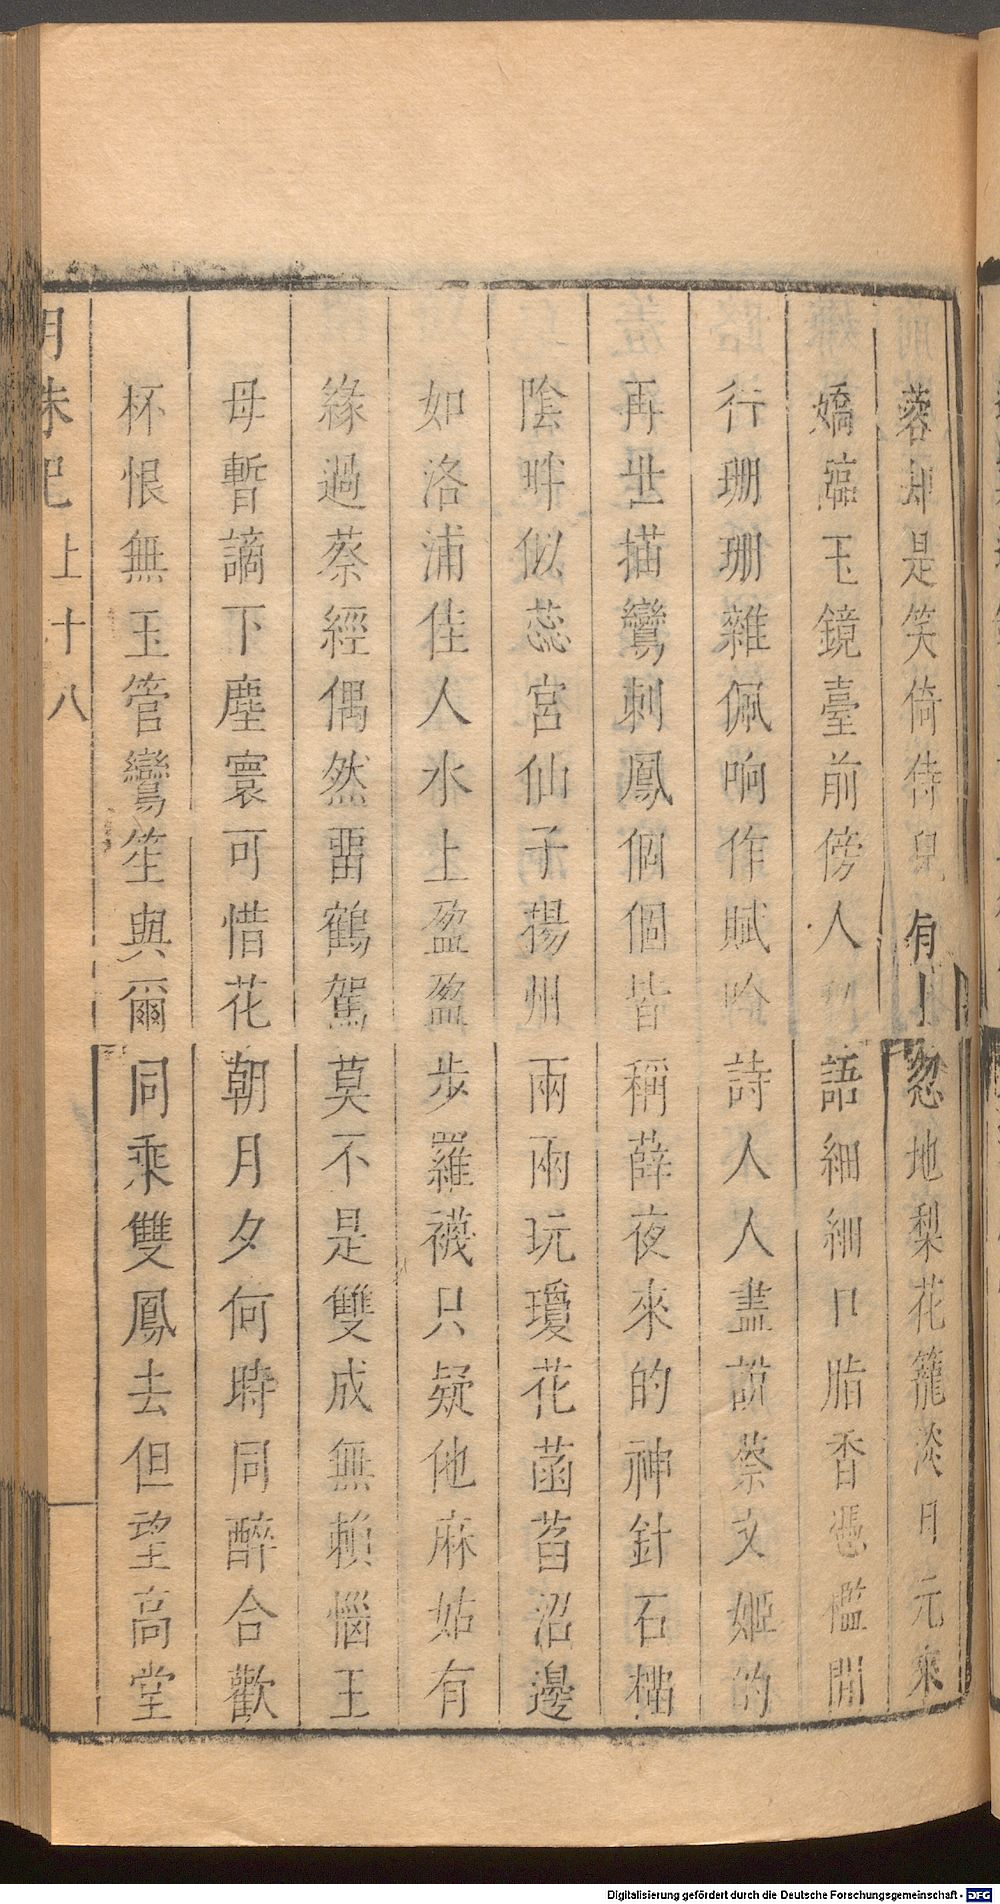 蓉却是笑倚侍兒有時忽地梨花籠淡月元來
嬌臨玉鏡臺前傍人語細細口脂香憑檻閒
行珊珊雜佩响作賦吟詩人人盡說蔡文姬的
再世描鸞刺鳳個個皆稱薛夜來的神針石橊
陰畔似蕊宮仙子揚州兩兩玩瓊花菡萏沼邊
如洛浦佳人水上盈盈步羅襪只疑他麻姑有
緣過蔡經偶然畱鶴駕莫不是雙成無賴惱王
母暫謫下塵寰可惜花朝月夕何時同醉合歡
杯恨無玉管鸞笙與爾同乘雙鳳去但望高堂
明珠記上十八
Digitalisierung gefördert durch die Deutsche Forschungsgemeinschaft - DFG